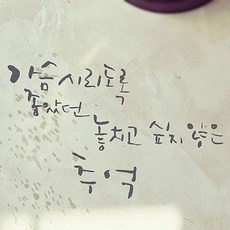 가슴 시리도록
좋았던
놓치고 싶지 않은
추억